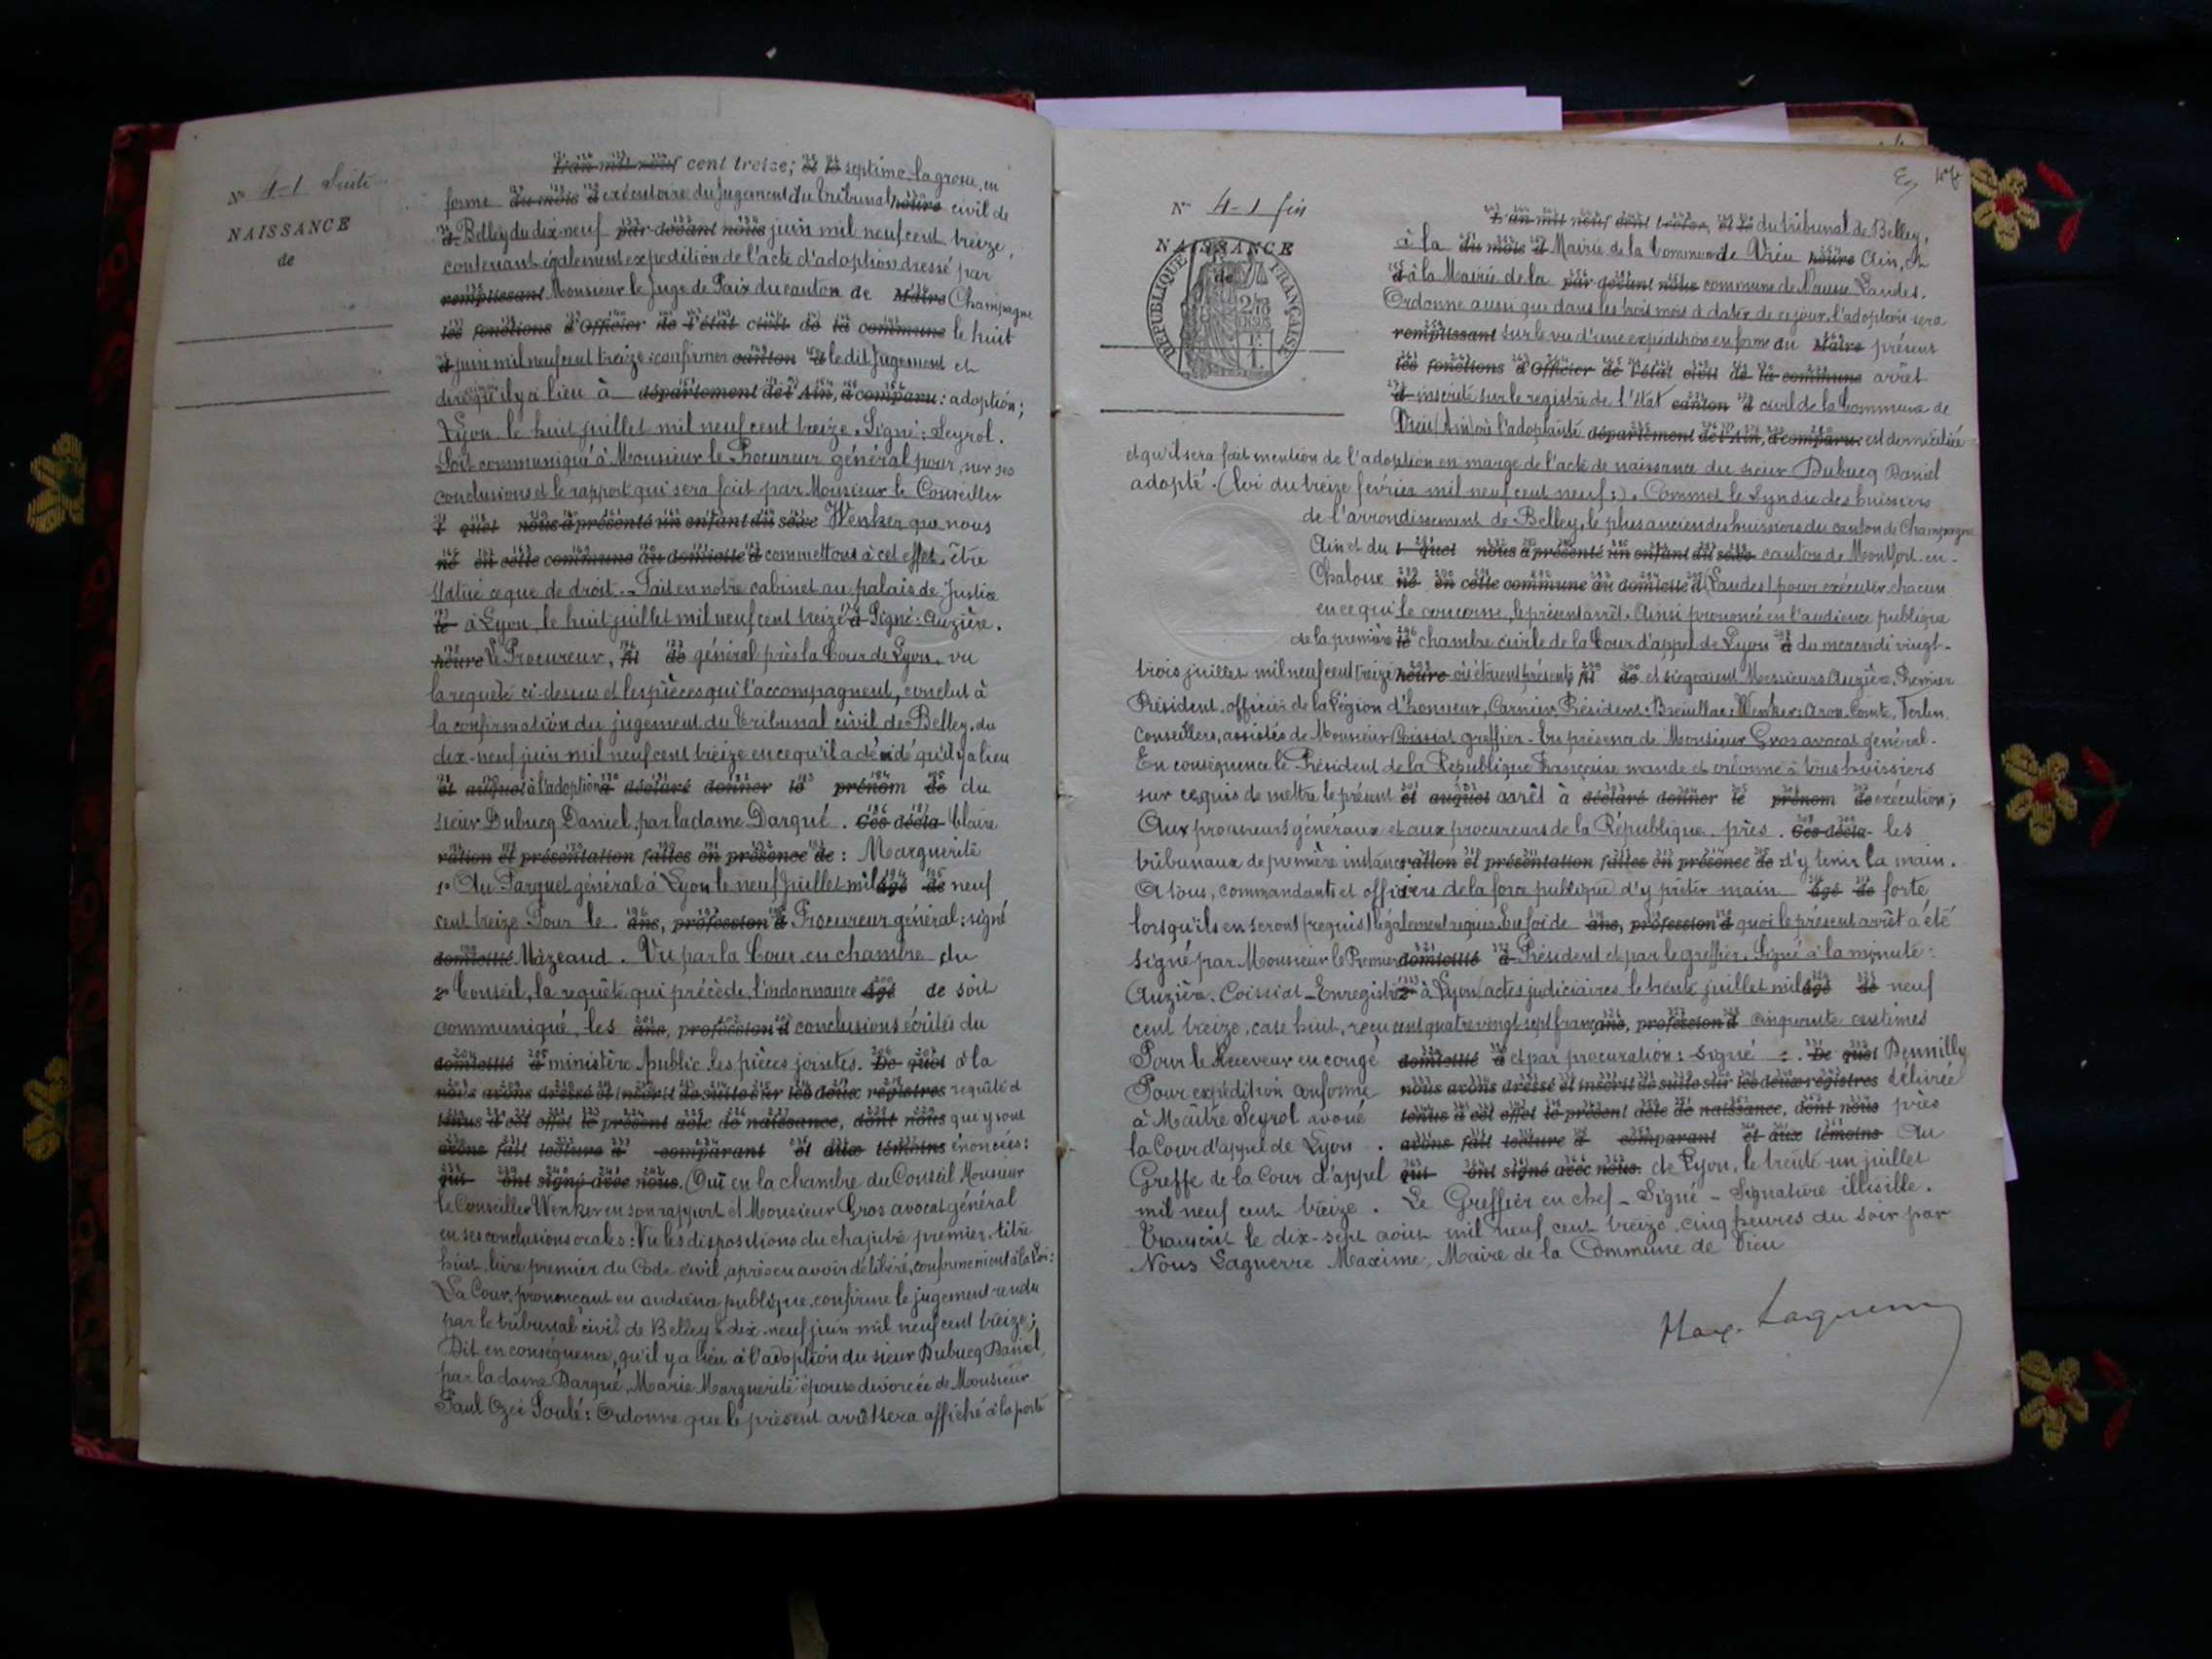 N° 4-1 Suite
NAISSANCE
de
L'an mil neuf cent treize; et le septime, la grosse, en
forme du mois d exécutoire du Jugement du Tribunal heure civil de
à Belley du dix-neuf par devant nous juin mil neuf cent treize,
contenant également expédition de l'acte d'adoption dressé par
remplissant Monsieur le Juge de Paix du canton de Maire Champagne
les fonctions d'Officier de l'état civil de la commune le huit
d juin mil neuf cent treize: confirmer canton d le dit Jugement et
dire qu'il y a lieu à département de l'Ain, a comparu: adoption;
Lyon, le huit juillet mil neuf cent treize. Signé: Seyrol.
Soit communiqué à Monsieur le Procureur général pour, sur ses
conclusions et le rapport qui sera fait par Monsieur le Conseiller
l quel nous a présenté un enfant du sexe Wenker que nous
né en cette commune au domicile d commettons à cet effet, être
statué ce que de droit. Fait en notre cabinet au palais de Justice
le à Lyon, le huit juillet mil neuf cent treize à Signé: Auzière.
heure Le Procureur, fil de général près la Cour de Lyon, vu
la requête ci-dessus et les pièces qui l'accompagnent, conclut à
la confirmation du jugement du Tribunal civil de Belley, du
dix-neuf juin mil neuf cent treize en ce qu'il a décidé qu'il y a lieu
et auquel à l'adoption a déclaré donner le prénom de du
sieur Dubucq Daniel, par la dame Darqué. Ces décla- Claire
ration et présentation faites en présence de: Marguerite
1° Au Parquet général à Lyon le neuf Juillet mil âgé de neuf
cent treize Pour le ans, profession d Procureur général: signé
domicilié Mazeaud. Vu par la Cour, en chambre du
2° Conseil, la requête qui précède, l'ordonnance âgé de soit
communiqué, les ans, profession d conclusions écrites du
domicilié à ministère public, les pièces jointes. De quoi à la
nous avons dressé et inscrit de suite sur les deux registres requête et
tenus à cet effet le présent acte de naissance, dont nous qui y sont
avons fait lecture à comparant et aux témoins énoncées:
qui ont signé avec nous. Ouï en la chambre du Conseil Monsieur
le Conseiller Wenker en son rapport et Monsieur Gros avocat général
en ses conclusions orales: Vu les dispositions du chapitre premier, titre
huit, livre premier du Code civil, après en avoir délibéré, conformément à la Loi:
La Cour, prononçant en audience publique, confirme le jugement rendu
par le tribunal civil de Belley le dix-neuf juin mil neuf cent treize;
Dit en conséquence, qu'il y a lieu à l'adoption du sieur Dubucq Daniel,
par la dame Darqué, Marie Marguerite épouse divorcée de Monsieur
Paul Soulé: Ordonne que le présent arrêt sera affiché à la porte
N° 4-1 fin
NAISSANCE
de
REPUBLIQUE FRANÇAISE
L'an mil neuf cent treize, et le du tribunal de Belley,
à la du mois d Mairie de la Commune de Vieu heure Ain, et
d à la Mairie de la par devant nous commune de Nousse Landes.
Ordonne aussi que dans les trois mois à dater de ce jour, l'adoption sera
remplissant sur le vu d'une expédition en forme du Maire présent
les fonctions d'Officier de l'état civil de la commune arrêt
d inscrite sur le registre de l'état canton d civil de la Commune de
Vieu (Ain) où l'adoptante département de l'Ain, a comparu: est domiciliée
et qu'il sera fait mention de l'adoption en marge de l'acte de naissance du sieur Dubucq Daniel
adopté. (Loi du treize février mil neuf cent neuf:). Commet le Syndic des huissiers
de l'arrondissement de Belley, le plus ancien des huissiers du canton de Champagne
Ain et du l quel nous a présenté un enfant du sexe canton de Montfort-en-
Chalosse né en cette commune au domicile d (Landes) pour exécuter, chacun
en ce qui le concerne, le présent arrêt. Ainsi prononcé en l'audience publique
de la première le chambre civile de la Cour d'appel de Lyon à du mercredi vingt-
trois juillet mil neuf cent treize heure où étaient présents fil de et siégeaient Messieurs Auzière, Premier
Président, officier de la Légion d'honneur, Carnier, Président: Breuillac: Wenker: Aron, Comte, Terlin,
Conseillers, assistés de Monsieur Coissiat greffier. En présence de Monsieur Gros avocat général.
En conséquence le Président de la République Française mande et ordonne à tous huissiers
sur ce requis de mettre le présent et auquel arrêt à déclaré donner le prénom de exécution;
Aux procureurs généraux et aux procureurs de la République, près. Ces décla- les
tribunaux de première instance ration et présentation faites en présence de d'y tenir la main.
A tous, commandants et officiers de la force publique d'y prêter main âgé de forte
lorsqu'ils en seront (requis) légalement requis. En foi de ans, profession d quoi le présent arrêt a été
signé par Monsieur le Premier domicilié à Président et par le greffier. Signé à la minute:
Auzière. Coissiat – Enregistré 2° à Lyon (actes judiciaires, le trente juillet mil âgé de neuf
cent treize, case huit, reçu cent quatre vingt sept francs ans, profession d cinquante centimes
Pour le Receveur en congé domicilié à et par procuration: Signé :. De quoi Dennilly
Pour expédition conforme nous avons dressé et inscrit de suite sur les deux registres délivrée
à Maître Seyrol avoué tenus à cet effet le présent acte de naissance, dont nous près
la Cour d'appel de Lyon. avons fait lecture à comparant et aux témoins Au
Greffe de la Cour d'appel qui ont signé avec nous. de Lyon, le trente-un juillet
mil neuf cent treize. Le Greffier en chef – Signé – Signature illisible.
Transcrit le dix-sept août mil neuf cent treize, cinq heures du soir par
Nous Laguerre Maxime, Maire de la Commune de Vieu
Max. Laguerre